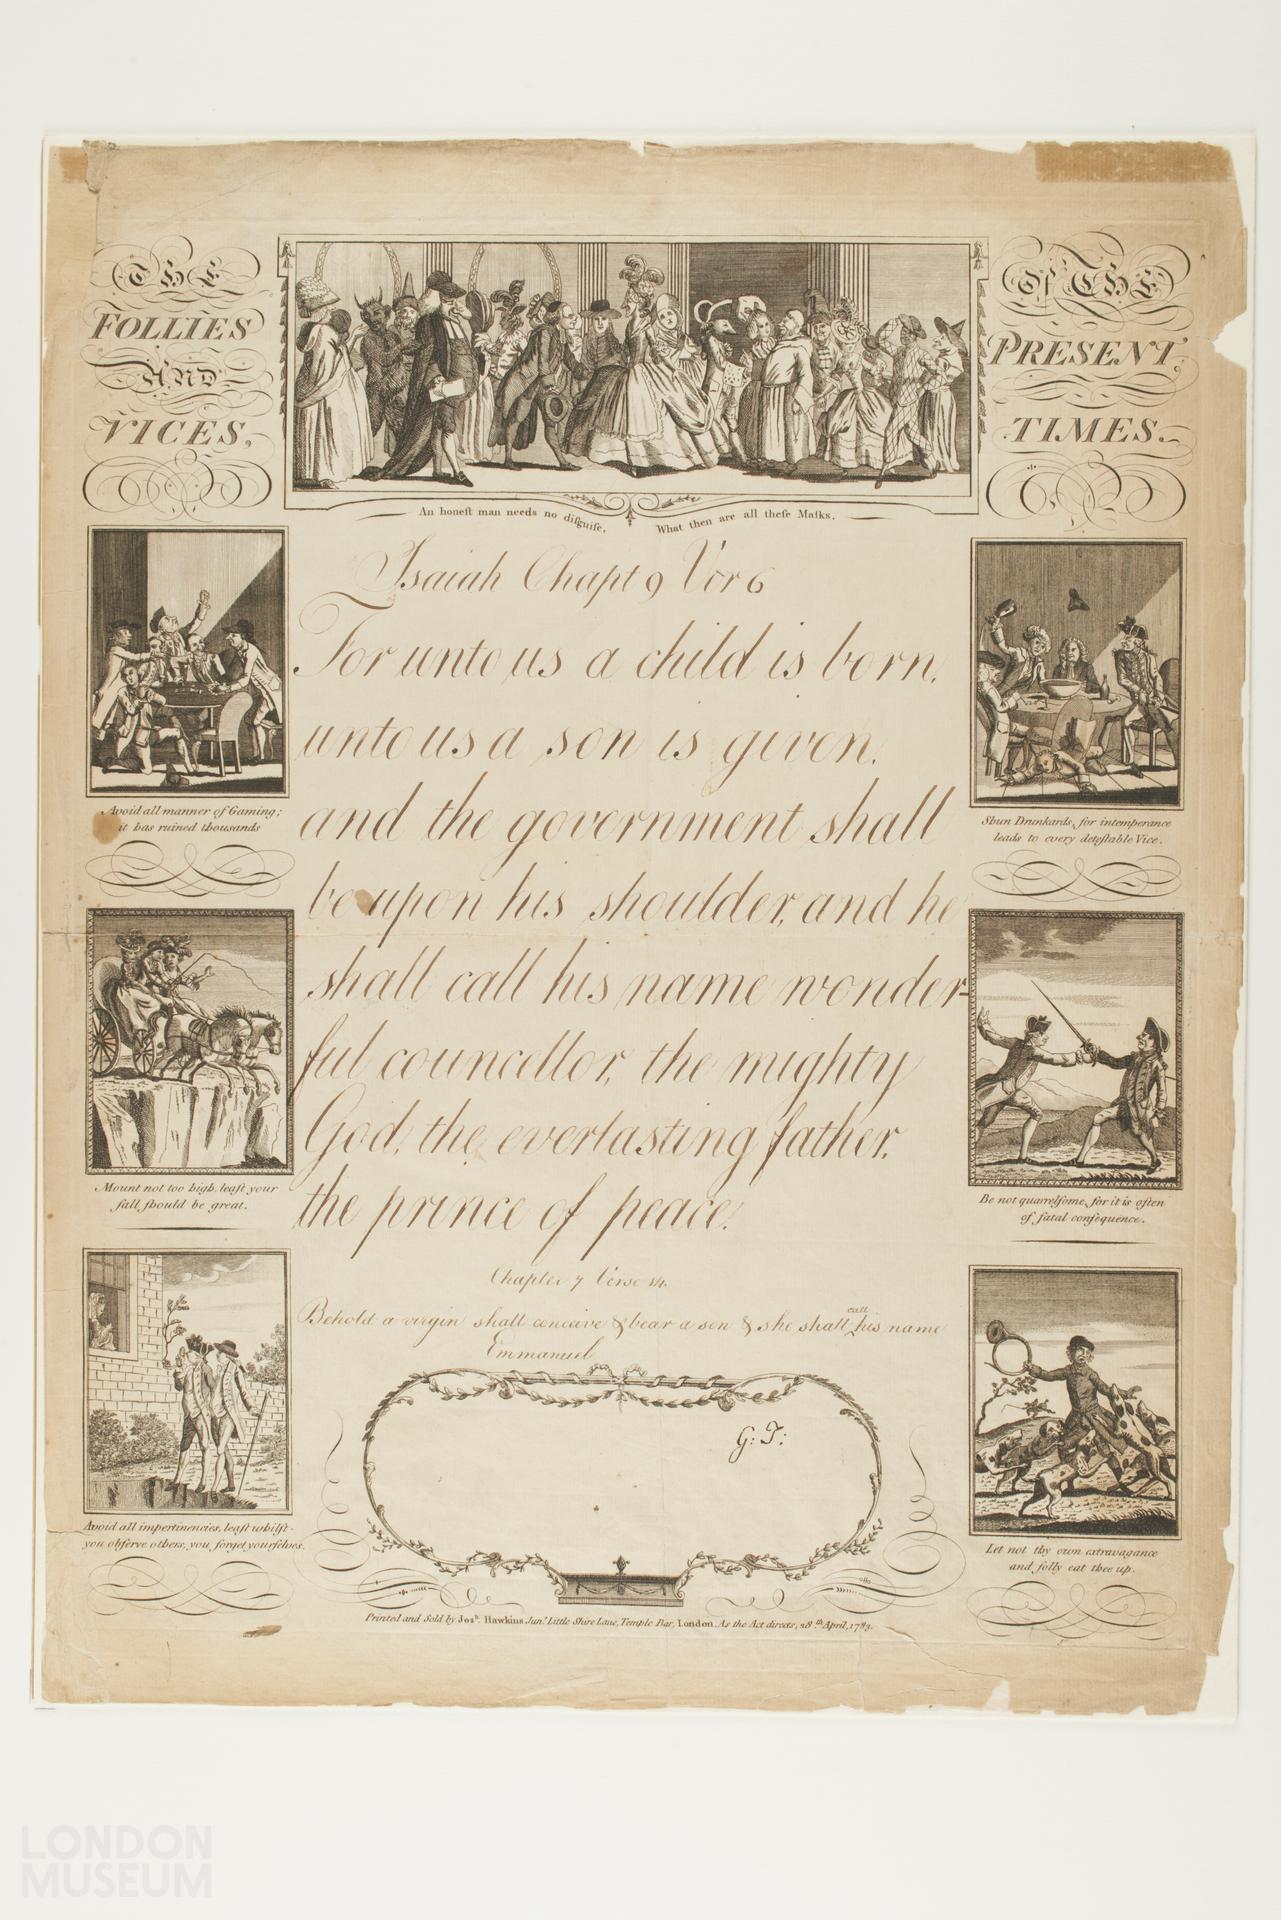 THE
FOLLIES
AND
VICES,
Of THE
PRESENT
TIMES.
An honeſt man needs no diſguiſe, What then are all theſe Maſks.
Isaiah Chapt 9 Ver 6
For unto us a child is born,
unto us a son is given,
and the government shall
be upon his shoulder, and he
shall call his name wonder-
ful councellor, the mighty
God, the everlasting father,
the prince of peace.
Chapter 7 Verse 14.
Behold a virgin shall conceive & bear a son & she shall call his name
Emmanuel
G: T:
Avoid all manner of Gaming;
it has ruined thousands
Mount not too high, leaſt your
fall, ſhould be great.
Avoid all impertinencies, leaſt whilſt
you obſerve others, you forget yourſelves.
Shun Drunkards, for intemperance
leads to every deteſtable Vice.
Be not quarrelſome, for it is often
of fatal conſequence.
Let not thy own extravagance
and folly eat thee up.
Printed and Sold by Josh. Hawkins Junr. Little Shire Lane, Temple Bar, London. As the Act directs, 28th. April, 1783.
LONDON
MUSEUM